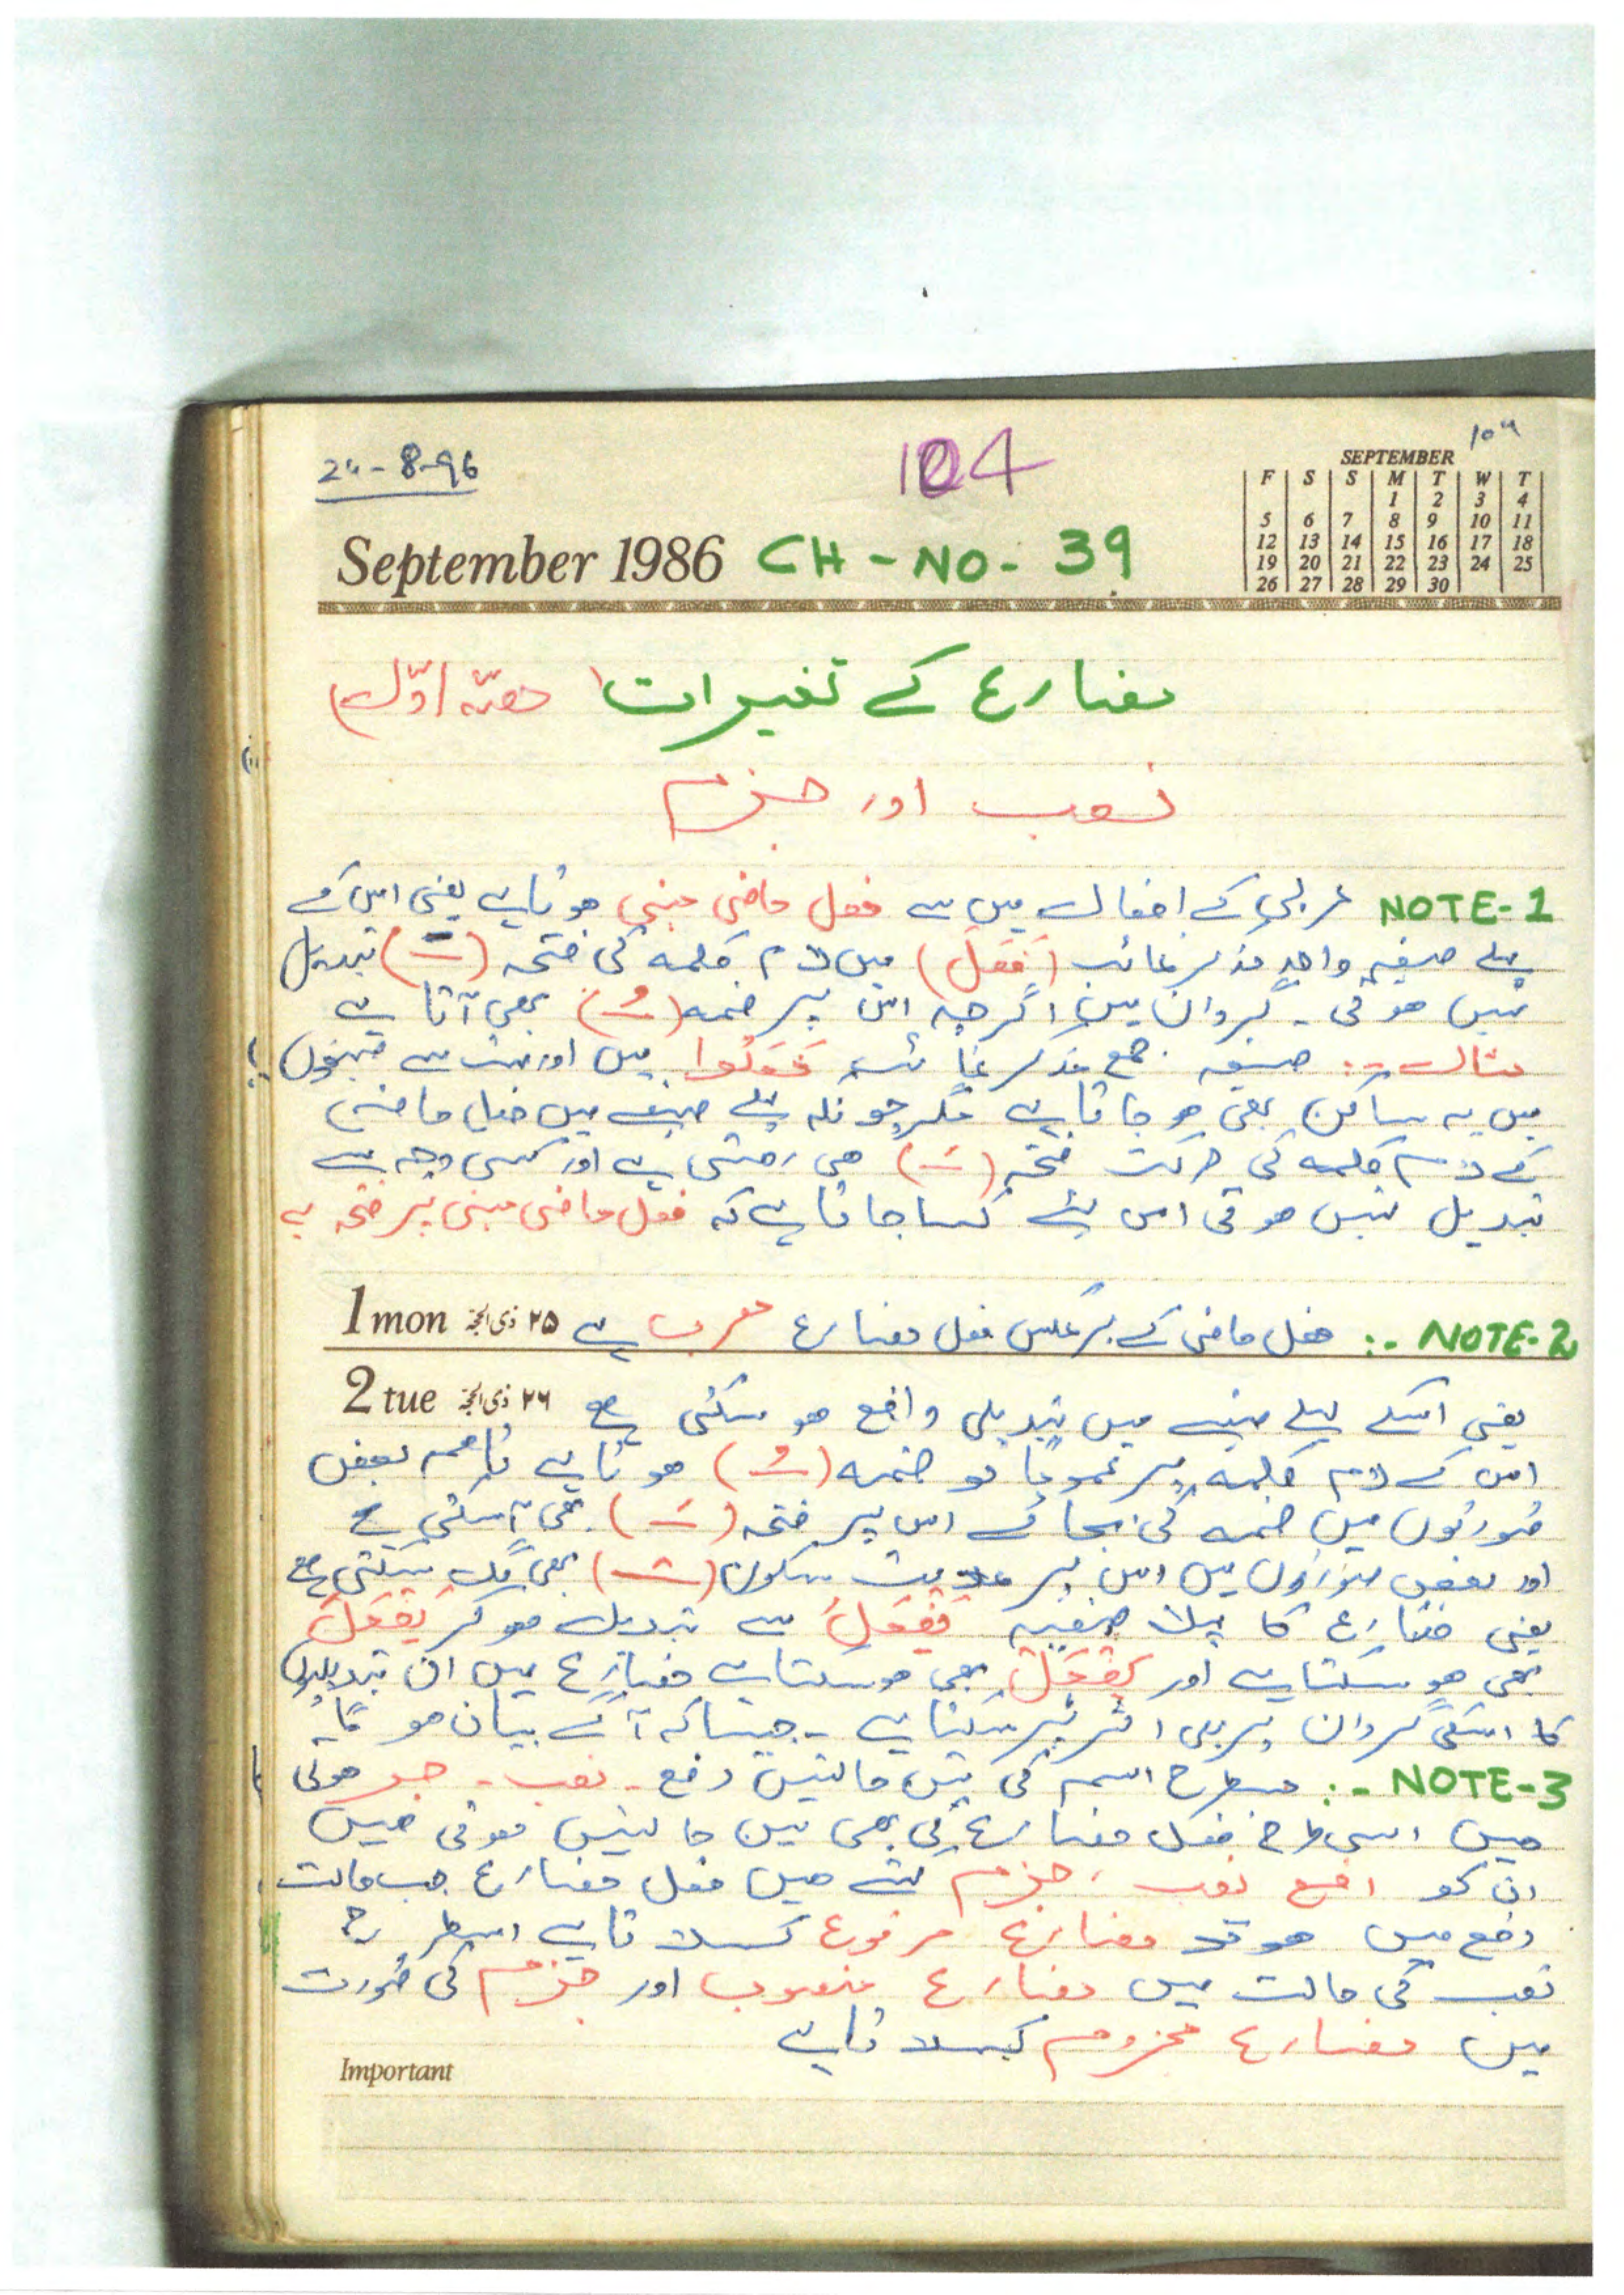 104
SEPTEMBER
F S S M T W T
1 2 3 4
5 6 7 8 9 10 11
12 13 14 15 16 17 18
19 20 21 22 23 24 25
26 27 28 29 30
September 1986 CH-NO-39
مضارع کے تغیرات (حصّہ اوّل)
نصب اور جزم
NOTE-1 عربی کے افعال میں سے فعل ماضی مبنی ہوتا ہے یعنی اس کے
پہلے صیغہ واحد مذکر غائب (فَعَلَ) میں لام کلمہ کی فتحہ (ـَـ) تبدیل
نہیں ہوتی - گردان میں اگرچہ اس پر ضمہ (ـُـ) بھی آتا ہے
مثال :- صیغہ جمع مذکر غائب فَعَلُوا میں اور بہت سے صیغوں
میں یہ ساکن بھی ہو جاتا ہے مگر چونکہ پہلے صیغے میں فعل ماضی
کے لام کلمہ کی حرکت فتحہ (ـَـ) ہی رہتی ہے اور کسی وجہ سے
تبدیل نہیں ہوتی اس لئے کہا جاتا ہے کہ فعل ماضی مبنی پر فتحہ ہے
1 mon ۲۵ ذی الحجۃ
NOTE-2 :- فعل ماضی کے برعکس فعل مضارع معرب ہے
2 tue ۲۶ ذی الحجۃ
یعنی اسکے پہلے صیغے میں تبدیلی واقع ہو سکتی ہے
اس کے لام کلمہ پر عموماً تو ضمہ (ـُـ) ہوتا ہے تاہم بعض
صورتوں میں ضمہ کی بجائے اس پر فتحہ (ـَـ) بھی آ سکتی ہے
اور بعض صورتوں میں اس پر علامت سکون (ـْـ) بھی لگ سکتی ہے
یعنی مضارع کا پہلا صیغہ یَفْعَلُ سے تبدیل ہو کر یَفْعَلَ
بھی ہو سکتا ہے اور یَفْعَلْ بھی ہو سکتا ہے مضارع میں ان تبدیلیوں
کا اسکی گردان پر بھی اثر پڑ سکتا ہے - جیسا کہ آگے بیان ہو گا
NOTE-3 :- جسطرح اسم کی تین حالتیں رفع - نصب - جر ہوتی
ہیں اسی طرح فعل مضارع کی بھی تین حالتیں ہوتی ہیں
ان کو رفع نصب ، جزم کہتے ہیں فعل مضارع جب حالت
رفع میں ہو تو مضارع مرفوع کہلاتا ہے اسطرح
نصب کی حالت میں مضارع منصوب اور جزم کی صورت
میں مضارع مجزوم کہلاتا ہے
Important